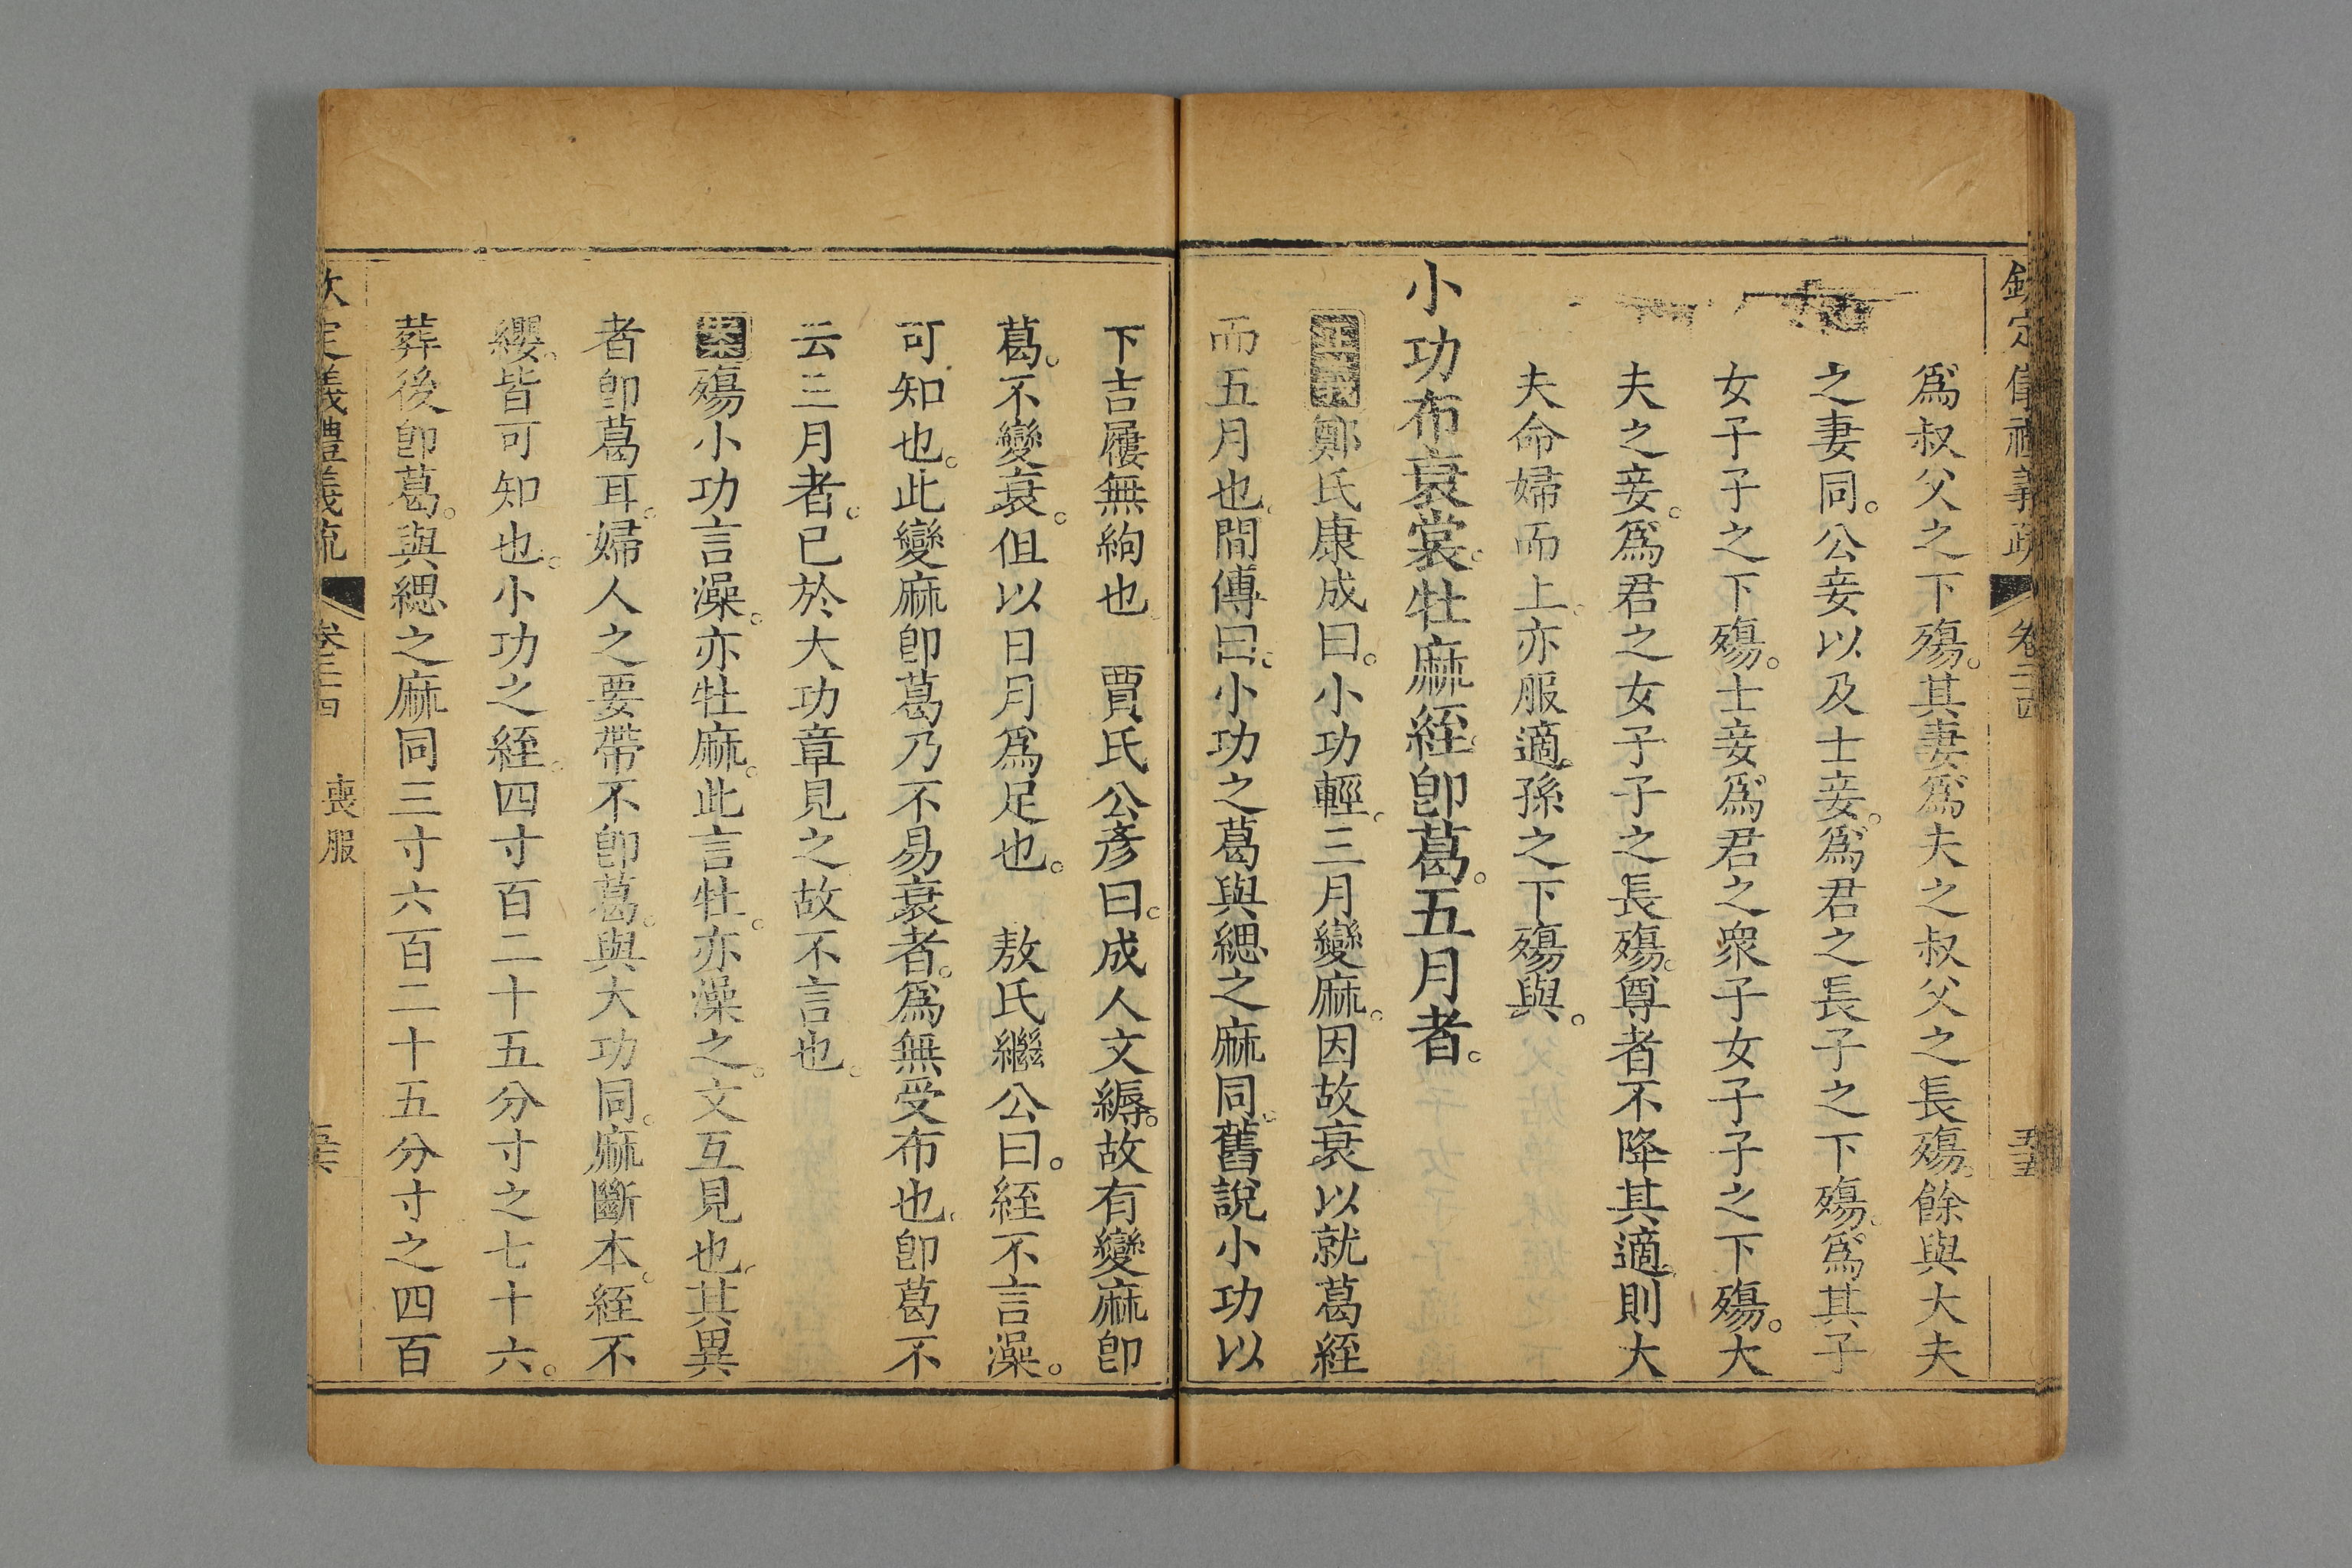 欽定儀禮義疏 卷二四 五五
爲叔父之下殤。其妻爲夫之叔父之長殤。餘與大夫
之妻同。公妾以及士妾。爲君之長子之下殤。爲其子
女子子之下殤。士妾爲君之衆子女子子之下殤。大
夫之妾。爲君之女子子之長殤。尊者不降其適。則大
夫命婦而上。亦服適孫之下殤與。
小功布衰裳。牡麻絰。卽葛。五月者。
正義鄭氏康成曰。小功輕。三月變麻。因故衰以就葛絰
而五月也。間傳曰。小功之葛與緦之麻同。舊說小功以
下吉屨無絇也。 賈氏公彥曰。成人文縟。故有變麻卽
葛。不變衰。但以日月爲足也。 敖氏繼公曰。絰不言澡。
可知也。此變麻卽葛乃不易衰者。爲無受布也。卽葛不
云三月者。已於大功章見之故不言也。
案殤小功言澡。亦牡麻。此言牡。亦澡之。文互見也。其異
者卽葛耳。婦人之要帶不卽葛。與大功同。麻斷本。絰不
纓。皆可知也。小功之絰。四寸百二十五分寸之七十六。
葬後卽葛。與緦之麻同三寸六百二十五分寸之四百
欽定義禮義疏 卷二四 喪服 五六